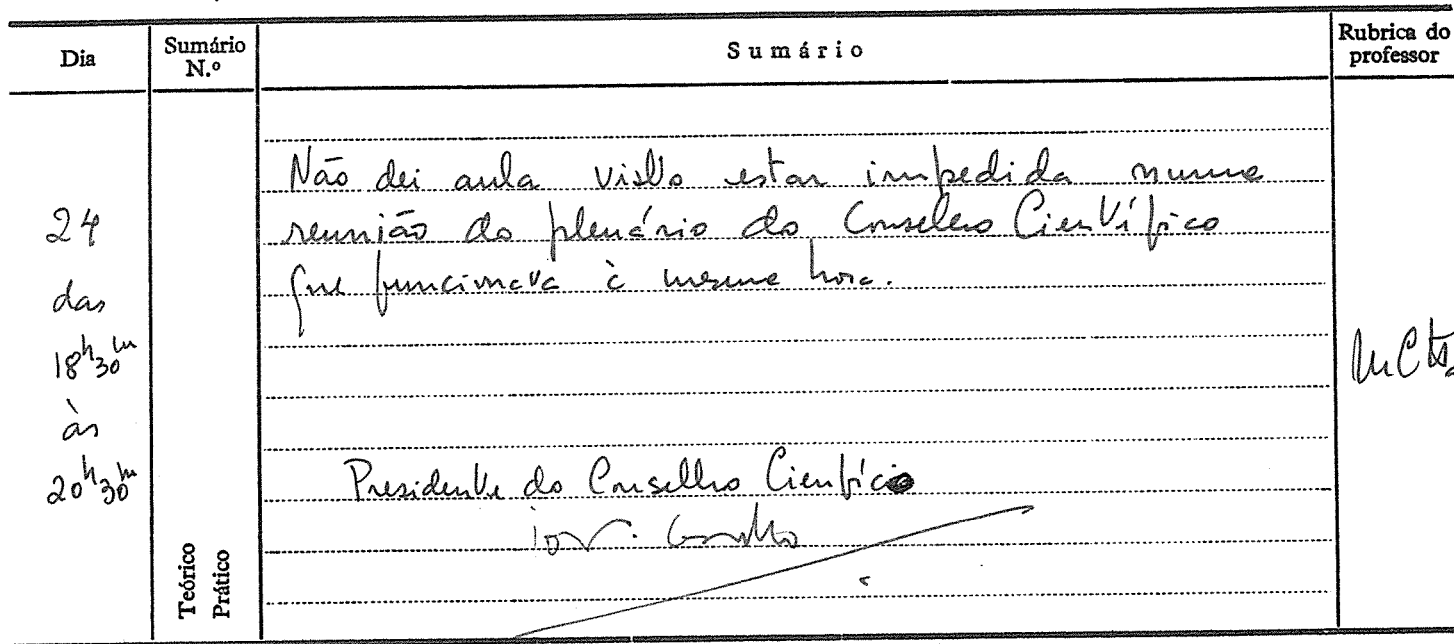 Dia
Sumário N.º
Sumário
Rubrica do professor
24
das
18h30m
às
20h30m
Não dei aula visto estar impedida numa
reunião do plenário do Conselho Científico
que funcionava à mesma hora.
Presidente do Conselho Cientifico
Teórico
Prático